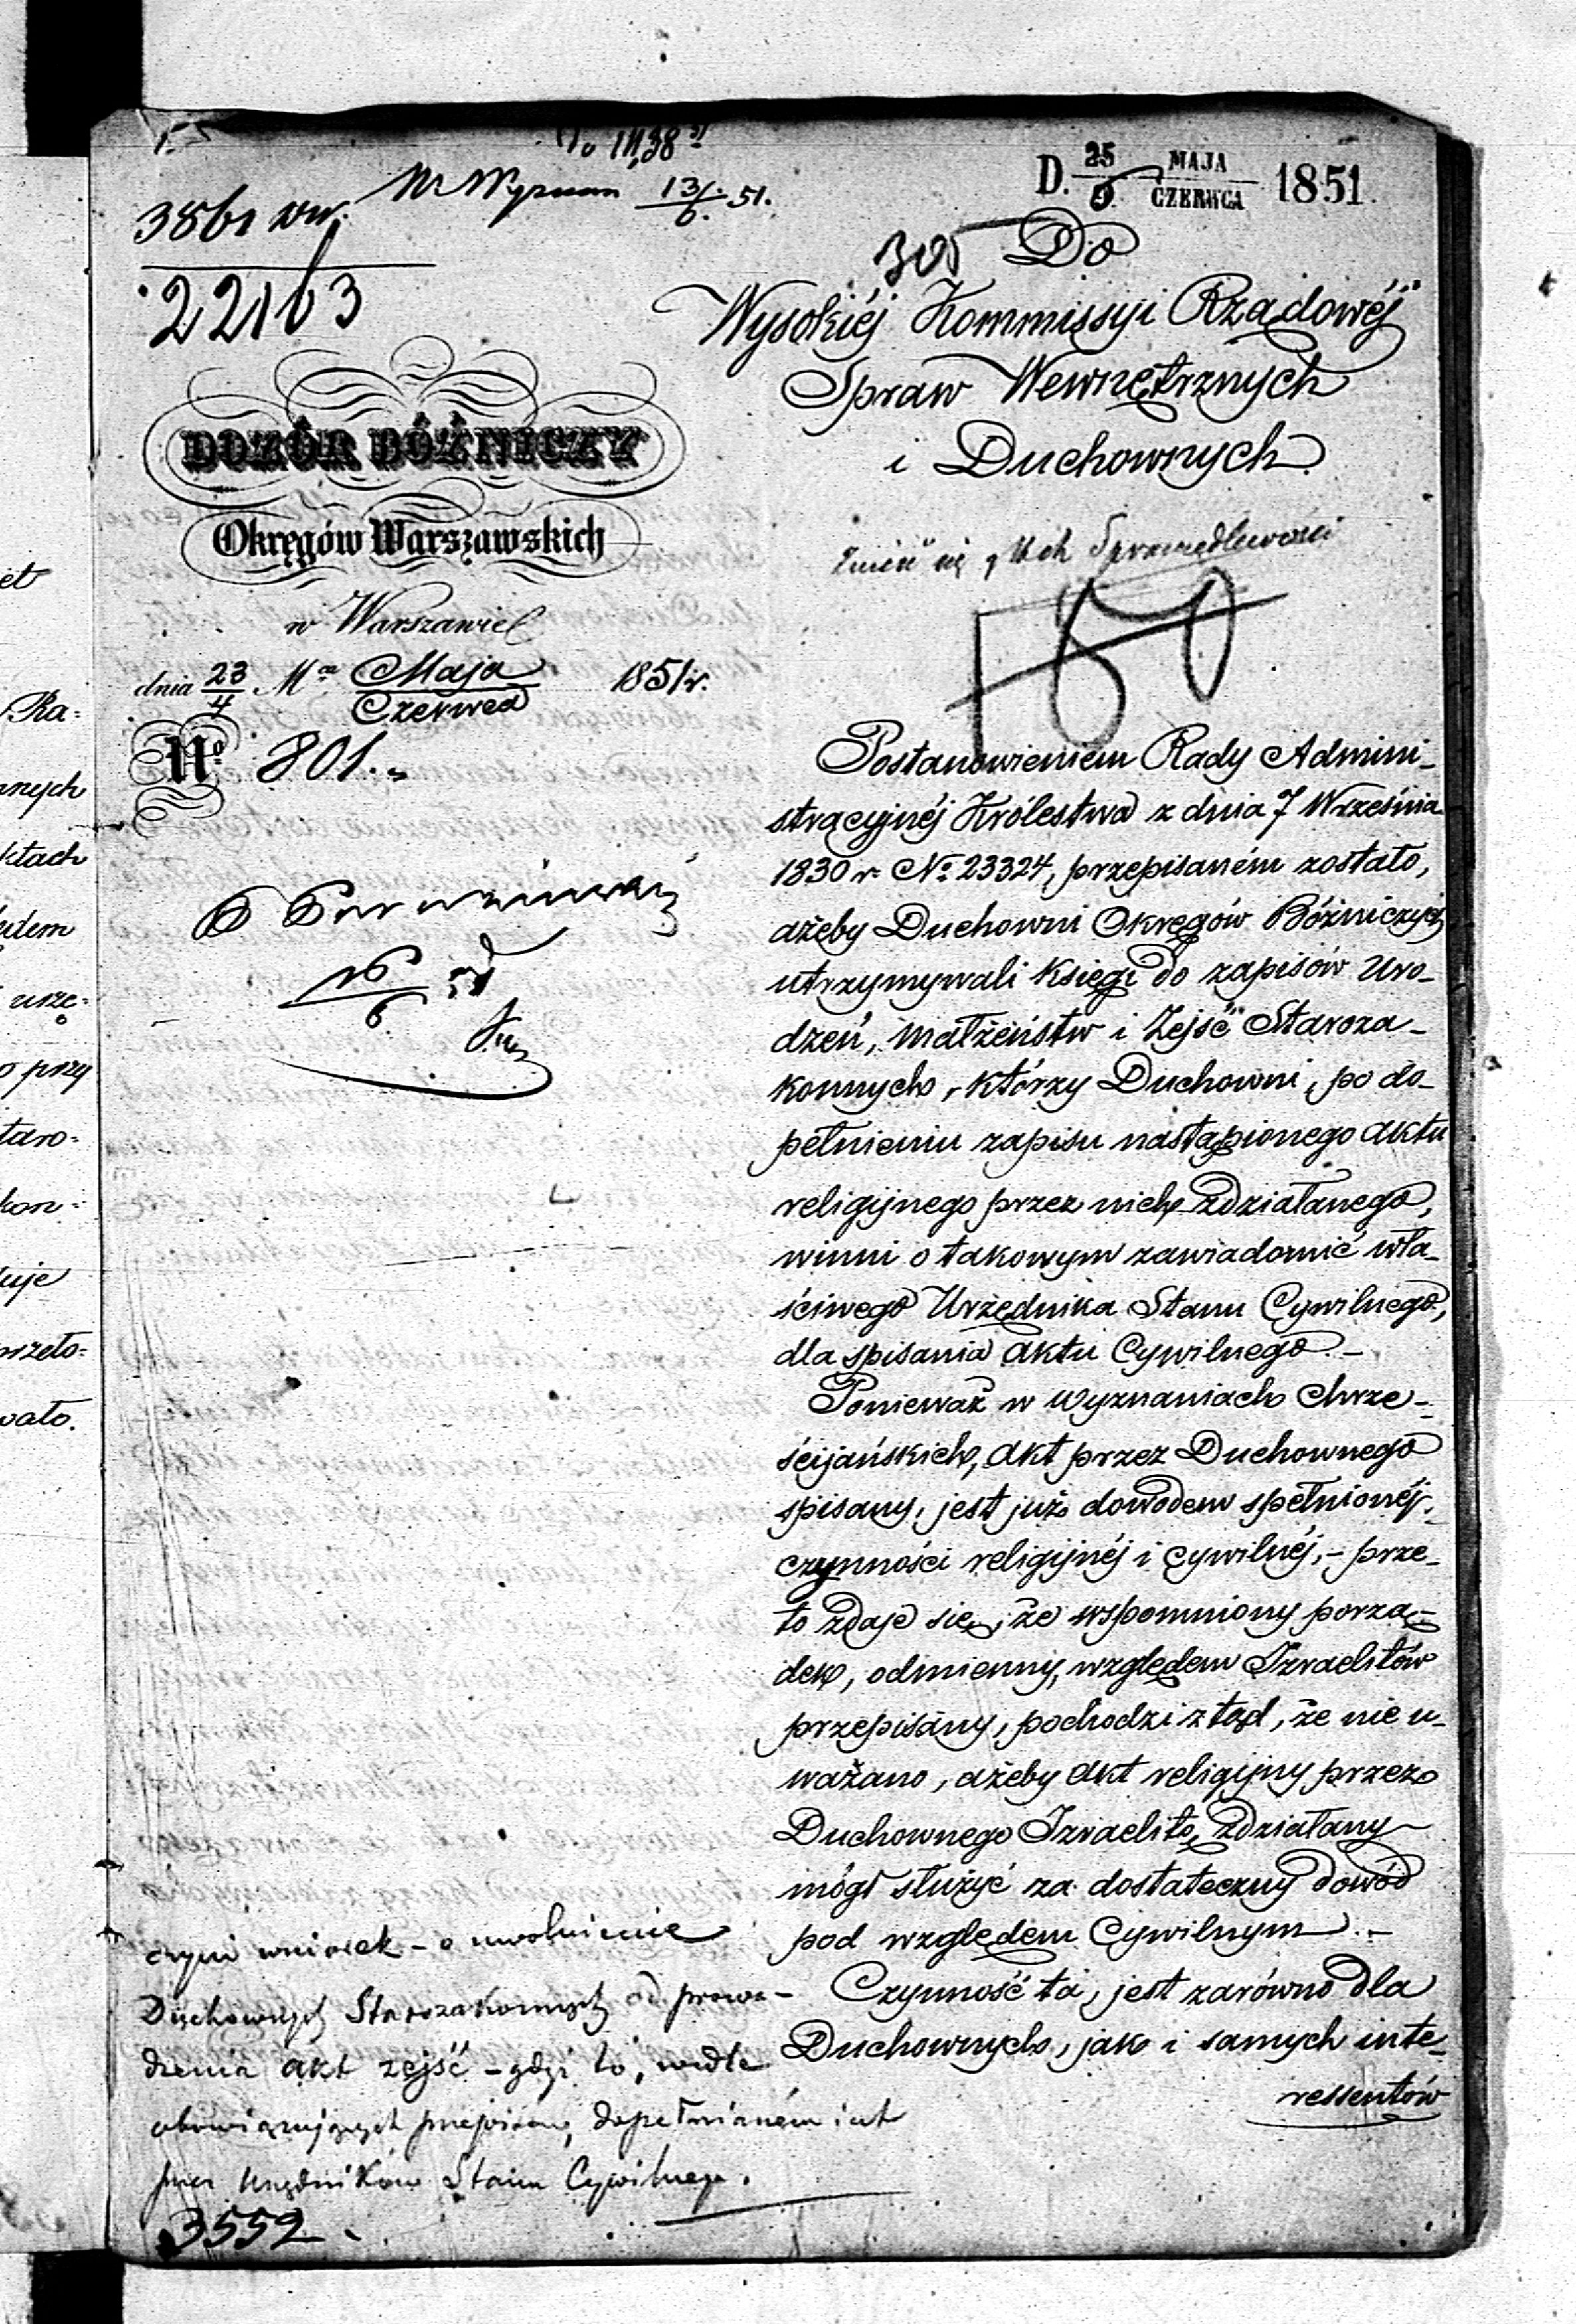 D. 25/6 MAJA/CZERWCA 1851
13/6. 51.
22163
305 Do
Wysokiéj Kommissyi Rządowéj
Spraw Wewnętrznych
i Duchownych
DOZÓR BÓŻNICZY
Okręgów Warszawskich
w Warszawie
dnia 23/4 Mca Maja/Czerwca 1851 r.
No. 801.
Postanowieniem Rady Admini-
stracyjnéj Królestwa z dnia 7 Września
1830 r No 23324, przepisaném zostało,
ażeby Duchowni Okręgów Bóżniczych
utrzymywali Księgi do zapisów Uro-
dzeń, Małżeństw i Zejść Staroza-
konnych, którzy Duchowni, po do-
pełnieniu zapisu nastąpionego aktu
religijnego przez nich zdziałanego,
winni o takowym zawiadomić wła-
ściwego Urzędnika Stanu Cywilnego,
dla spisania aktu Cywilnego. –
Ponieważ w wyznaniach Chrze-
ścijańskich, akt przez Duchownego
spisany, jest już dowodem spełnionéj
czynności religijnéj i cywilnéj, – prze-
to zdaje się, że wspomniony porzą-
dek, odmienny, względem Izraelitów
przepisany, pochodzi ztąd, że nie u-
ważano, ażeby akt religijny przez
Duchownego Izraelitę, zdziałany
mógł służyć za dostateczny dowód
pod względem Cywilnym. –
Czynność ta, jest zarówno dla
Duchownych, jak i samych inte-
ressentów
czyni wniosek – o uwolnienie
Duchownych Starozakonnych od prowa-
dzenia akt zejść – gdyż to, wedle
obowiązujących przepisów, dopełnianém jest
przez Urzędników Stanu Cywilnego.
3552